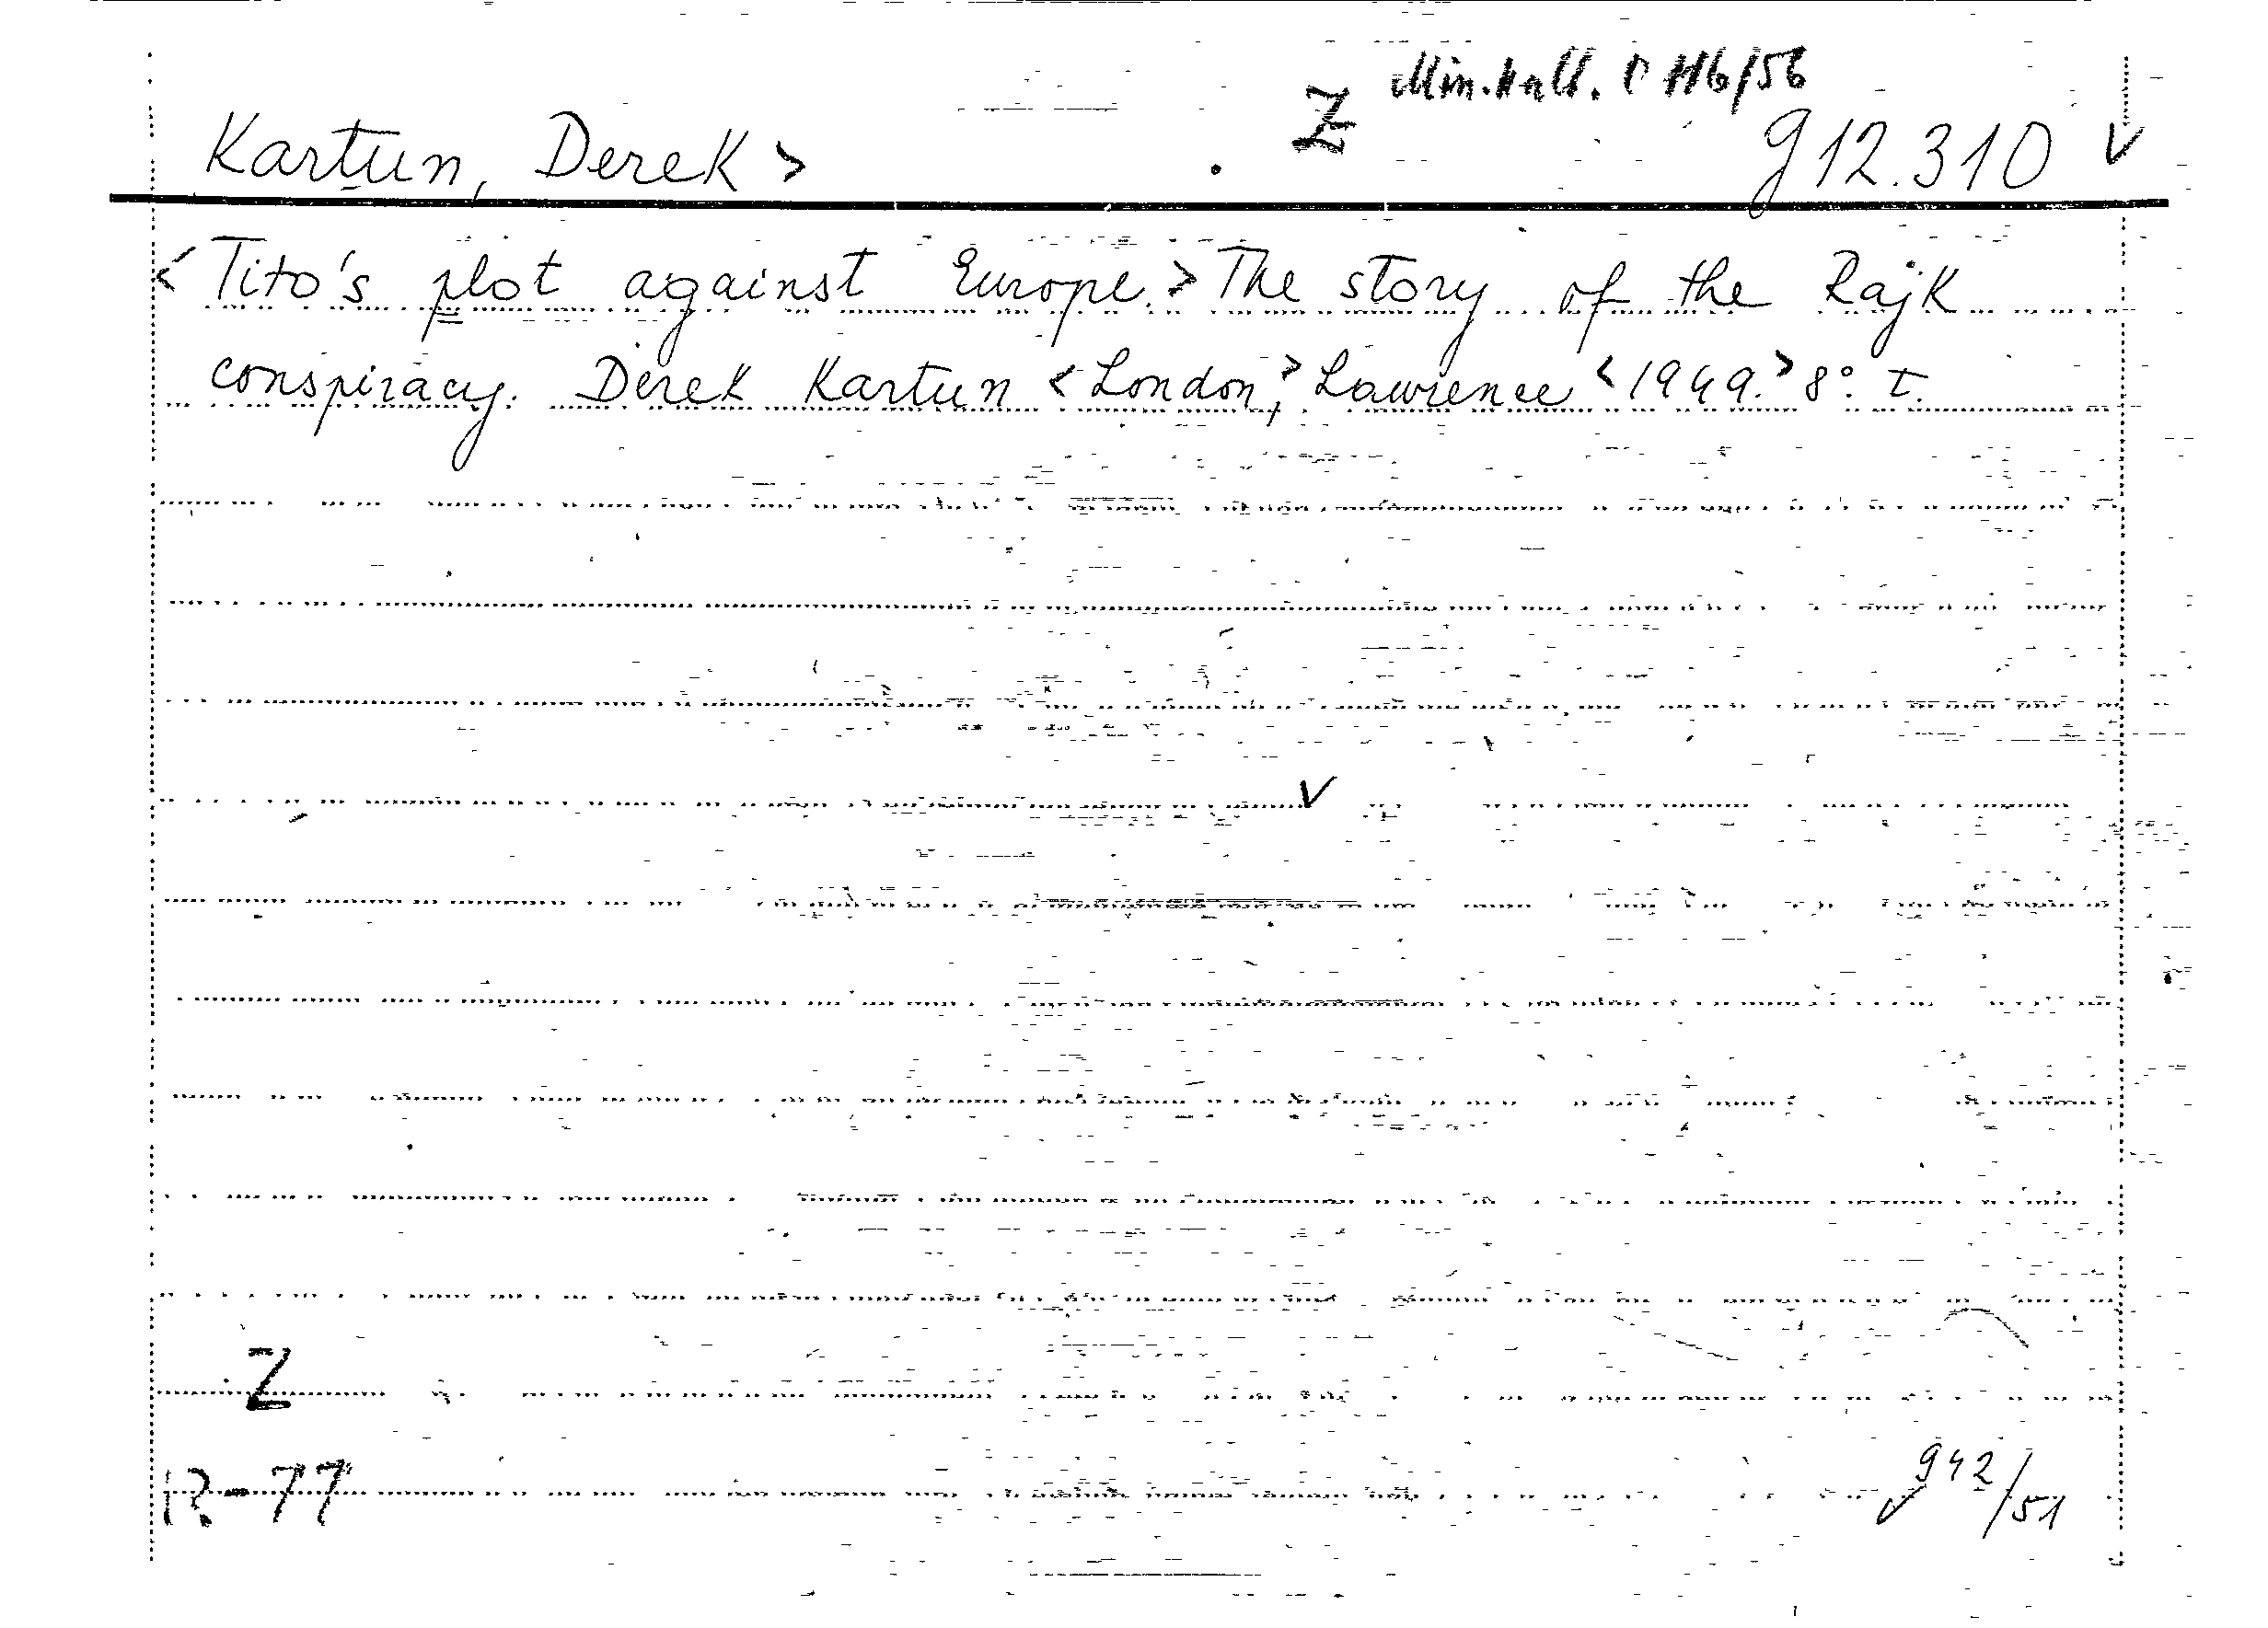 Z
Kartun, Derek > 912.310 V
< Tito's plot against Europe. > The story of the Rajk
conspiracy. Derek Kartun < London, > Lawrence < 1949. > 8° I.
Z
R-77 942/51